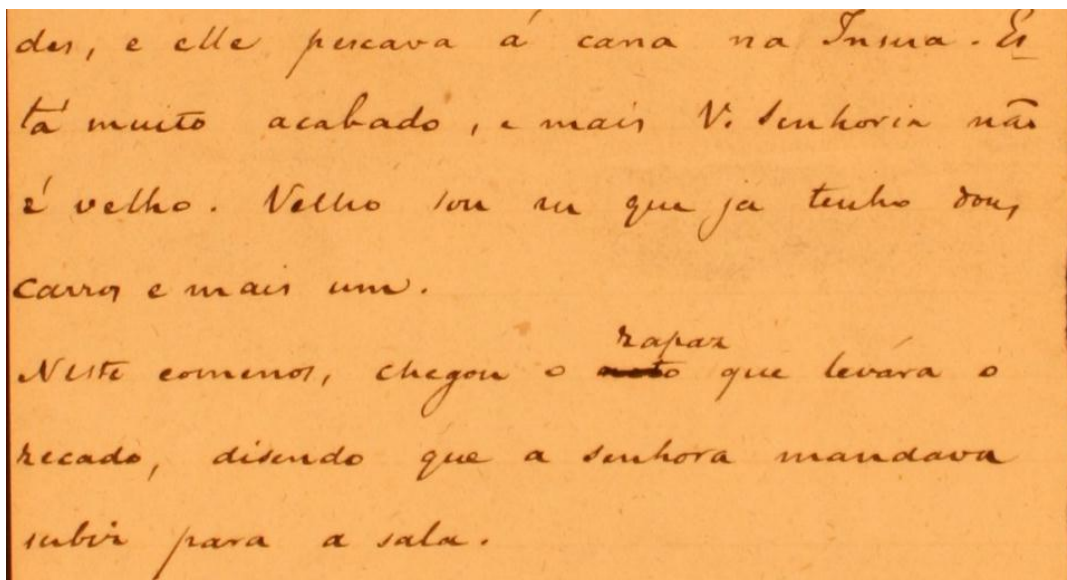 des, e elle pescava á cana na Insua. Es
tá muito acabado, e mais V. Senhoria não
é velho. Velho sou eu que ja tenho dous
carros e mais um.
rapaz
Neste comenos, chegou o neto que levára o
recado, disendo que a senhora mandava
subir para a sala.